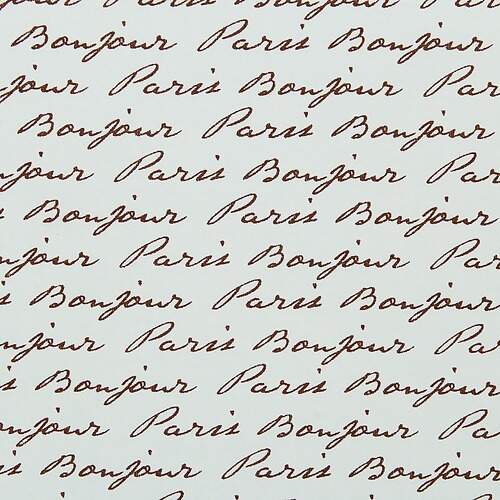 Bonjour Paris Bonjour
jour Paris Bonjour Par
Bonjour Paris Bonjour
jour Paris Bonjour Pa
s Bonjour Paris Bonjour
njour Paris Bonjour Pa
is Bonjour Paris Bonjour
njour Paris Bonjour Pa
is Bonjour Paris Bonjour
onjour Paris Bonjour Pa
is Bonjour Paris Bonjour